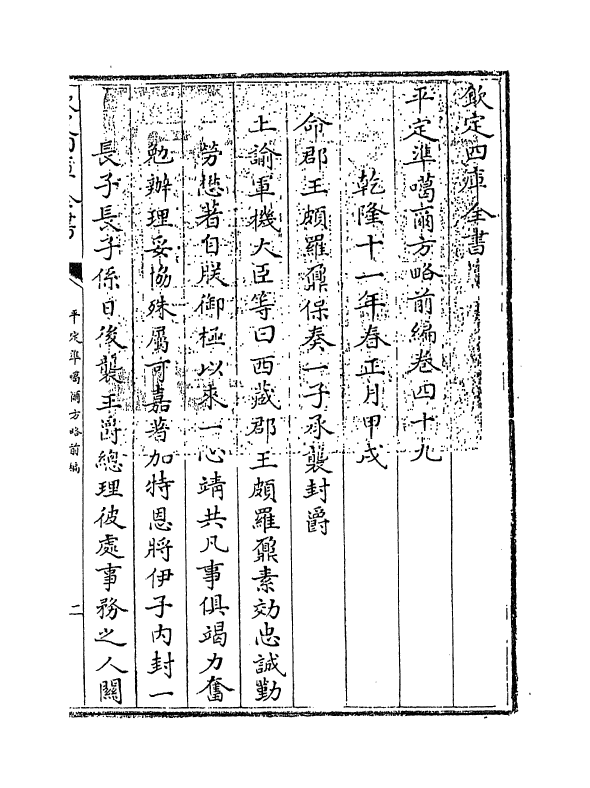 欽定四庫全書
平定準噶爾方略前編卷四十九
乾隆十一年春正月甲戌
命郡王頗羅鼐保奏一子承襲封爵
上諭軍機大臣等曰西藏郡王頗羅鼐素効忠誠勤
勞懋著自朕御極以來一心靖共凡事俱竭力奮
勉辦理妥協殊屬可嘉著加特恩將伊子內封一
長子長子係日後襲王爵總理彼處事務之人關
平定準噶爾方略前編